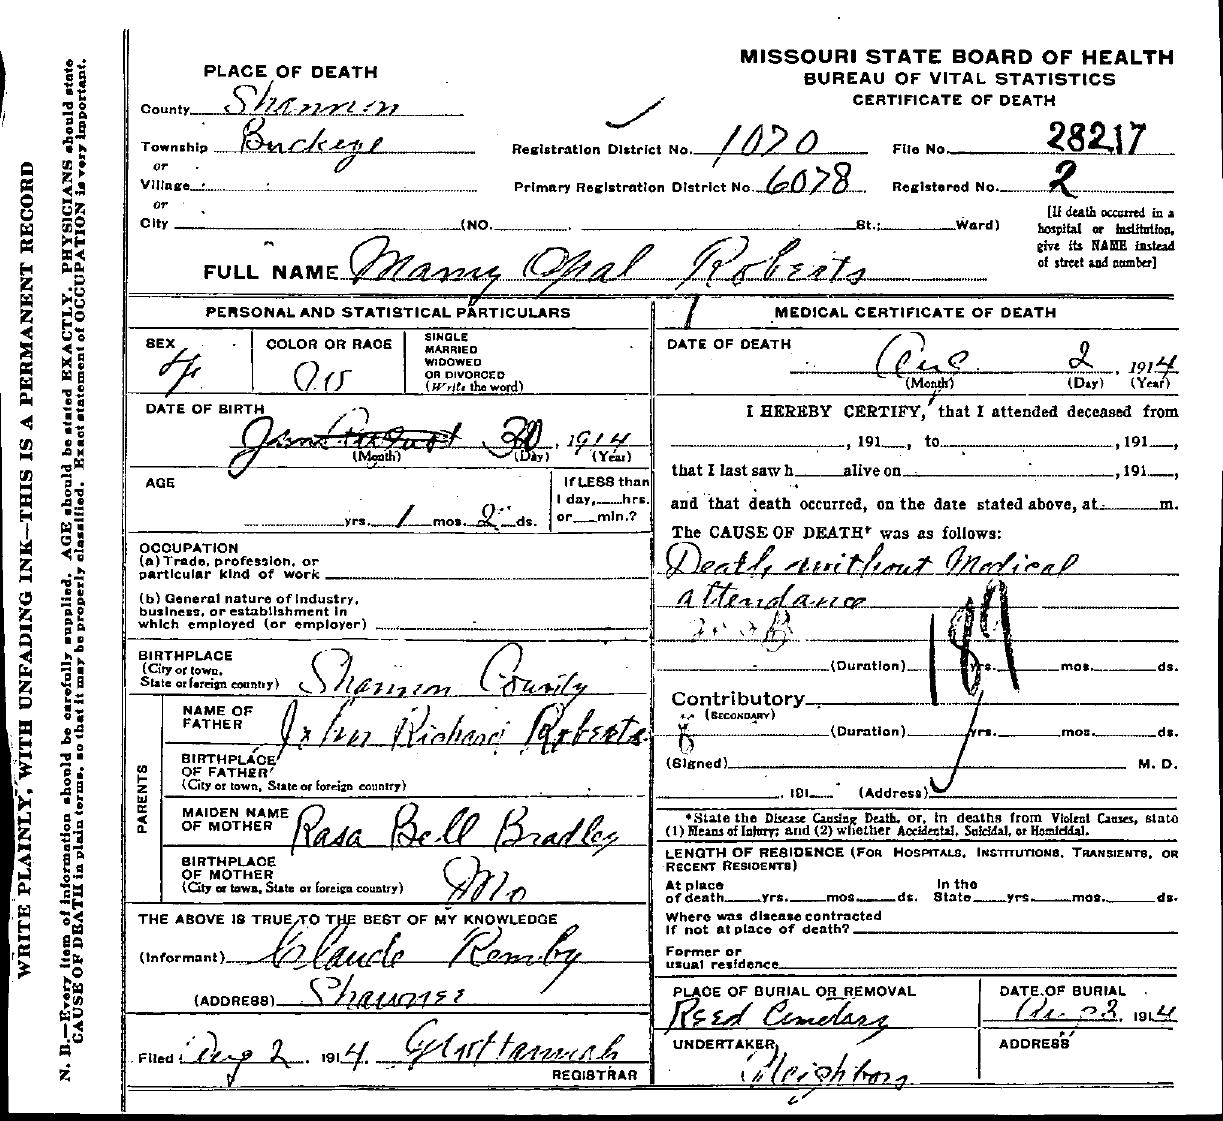 MISSOURI STATE BOARD OF HEALTH
BUREAU OF VITAL STATISTICS
CERTIFICATE OF DEATH
PLACE OF DEATH
County Shannon
Township Buckeye
or
Village
or
City (NO. St.; Ward)
Registration District No. 1070 File No. 28217
Primary Registration District No. 6078 Registered No. 2
[If death occurred in a
hospital or institution,
give its NAME instead
of street and number]
FULL NAME Mamy Opal Roberts
PERSONAL AND STATISTICAL PARTICULARS
SEX
COLOR OR RACE
SINGLE
MARRIED
WIDOWED
OR DIVORCED
(Write the word)
DATE OF BIRTH
30, 1914
(Month) (Day) (Year)
AGE
If LESS than
1 day, hrs.
or min.?
yrs. 1 mos. 2 ds.
OCCUPATION
(a) Trade, profession, or
particular kind of work
(b) General nature of industry,
business, or establishment in
which employed (or employer)
BIRTHPLACE
(City or town,
State or foreign country) Shannon County
PARENTS
NAME OF
FATHER John Richard Roberts
BIRTHPLACE
OF FATHER
(City or town, State or foreign country)
MAIDEN NAME
OF MOTHER Rasa Bell Bradley
BIRTHPLACE
OF MOTHER
(City or town, State or foreign country) Mo
THE ABOVE IS TRUE TO THE BEST OF MY KNOWLEDGE
(Informant) Claude
(ADDRESS) Shawnee
Filed Aug 2, 1914.
REGISTRAR
MEDICAL CERTIFICATE OF DEATH
DATE OF DEATH
2, 1914
(Month) (Day) (Year)
I HEREBY CERTIFY, that I attended deceased from
, 191 , to , 191 ,
that I last saw h alive on , 191 ,
and that death occurred, on the date stated above, at m.
The CAUSE OF DEATH* was as follows:
Death without Medical
attendance
189
(Duration) yrs. mos. ds.
Contributory
(SECONDARY)
(Duration) yrs. mos. ds.
(Signed) M. D.
, 191 (Address)
*State the Disease Causing Death, or, in deaths from Violent Causes, state
(1) Means of Injury; and (2) whether Accidental, Suicidal, or Homicidal.
LENGTH OF RESIDENCE (FOR HOSPITALS, INSTITUTIONS, TRANSIENTS, OR
RECENT RESIDENTS)
At place In the
of death yrs. mos. ds. State yrs. mos. ds.
Where was disease contracted
if not at place of death?
Former or
usual residence
PLACE OF BURIAL OR REMOVAL
Reed Cemetary
DATE OF BURIAL
3, 1914
UNDERTAKER
Neighbors
ADDRESS
WRITE PLAINLY, WITH UNFADING INK—THIS IS A PERMANENT RECORD
N. B.—Every item of information should be carefully supplied. AGE should be stated EXACTLY. PHYSICIANS should state
CAUSE OF DEATH in plain terms, so that it may be properly classified. Exact statement of OCCUPATION is very important.